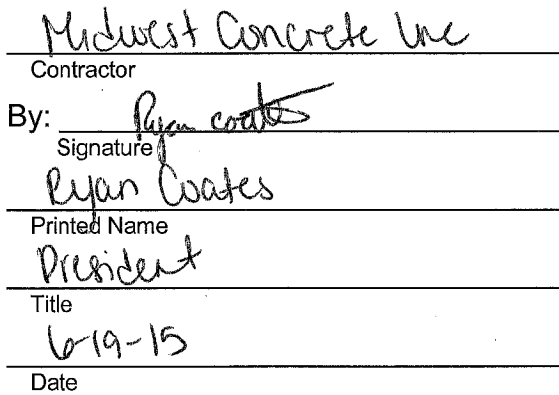 Midwest Concrete Inc
Contractor
By: Ryan Coates
Signature
Ryan Coates
Printed Name
President
Title
6-19-15
Date